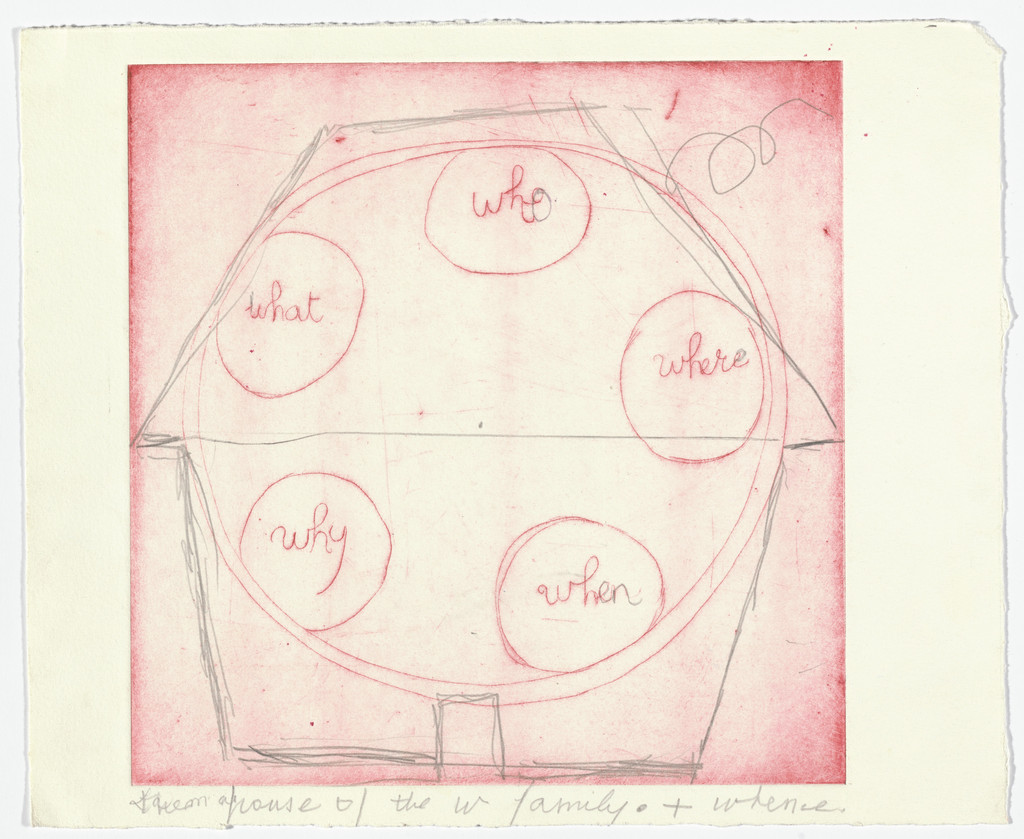 who
what
where
why
when
house of the w family. + whence.